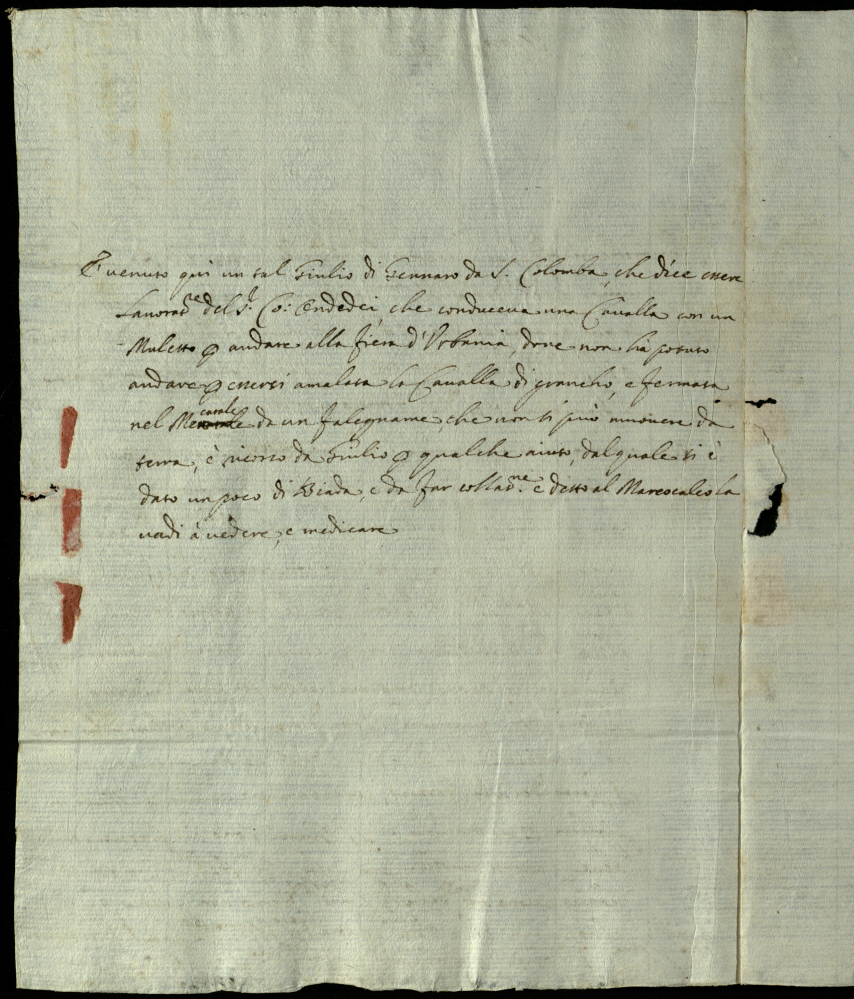 È venuto quì un tal Giulio di Gennaro da S. Colomba, che dice essere
Lavorad.re del S.r Co: Bendedei, che conduceva una Cavalla con un
Muletto p andare alla fiera d'Urbania, dove non hà potuto
andare p essersi amalata la Cavalla di granchio, e fermata
nel Mercatale da un falegname, che non si può muovere da
terra, è ricorso da Giulio p qualche aiuto, dal quale si è
dato un poco di Biada, e da far collaz.ne e detto al Marescalco la
vadi à vedere, e medicare